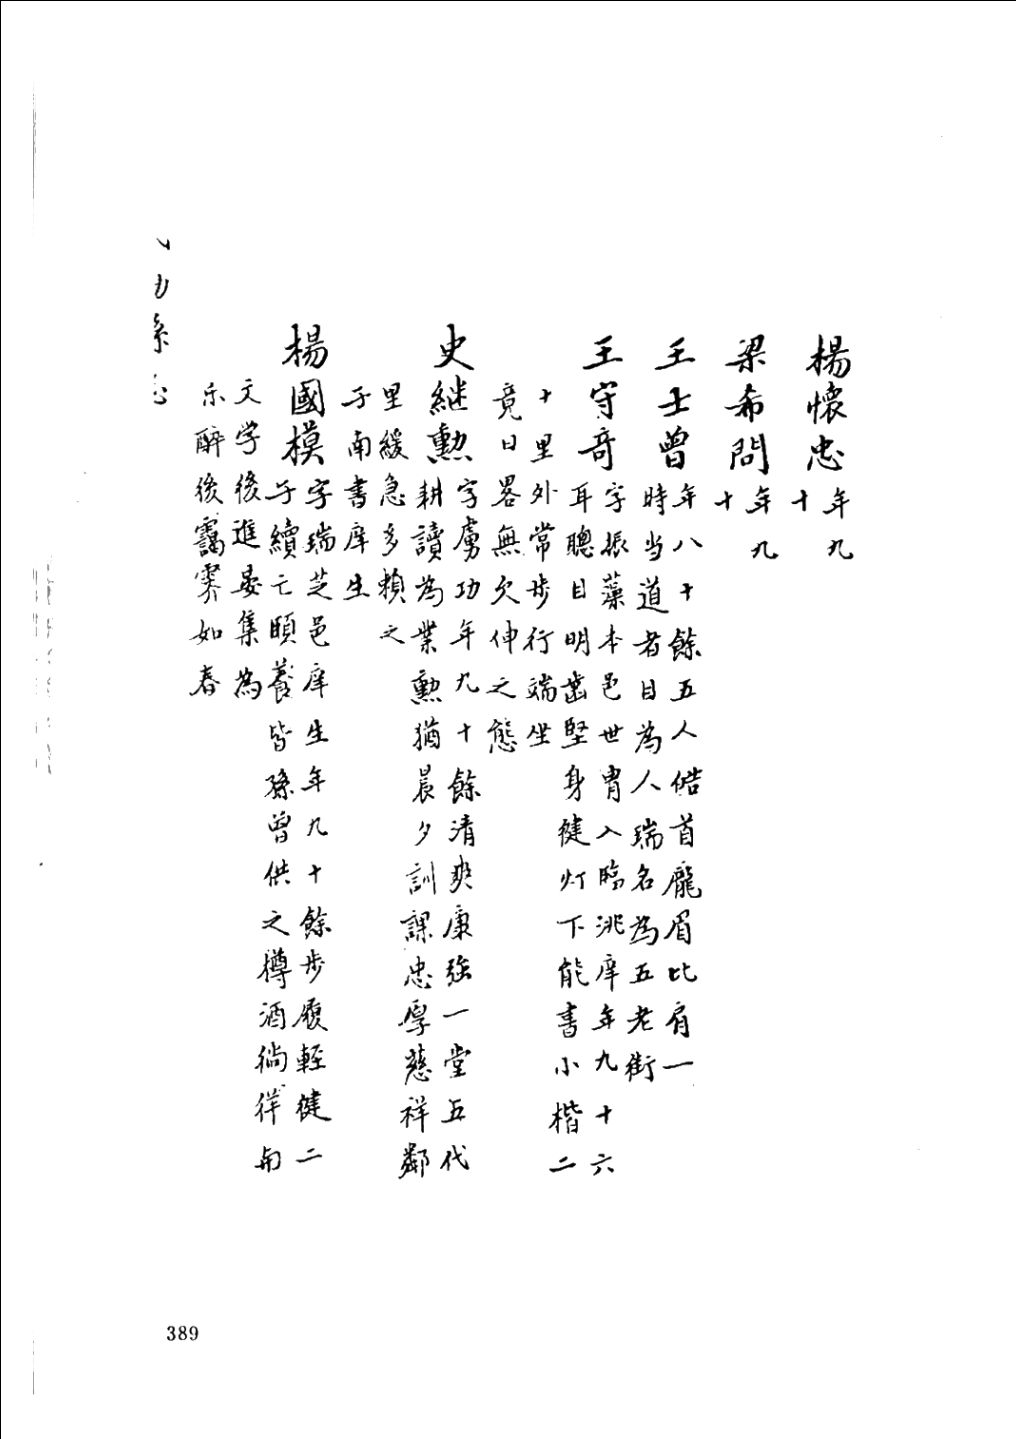 楊懷忠年九
十
梁希問年九
十
王士曾年八十餘五人皓首龐眉比肩一
時当道者目為人瑞名為五老街
王守奇字振藻本邑世胄入臨洮庠年九十六
耳聰目明齒堅身健灯下能書小楷二
十里外常步行端坐
竟日畧無欠伸之態
史継勲字虜功年九十餘清爽康強一堂五代
耕讀為業勲猶晨夕訓課忠厚慈祥鄰
里緩急多頼之
子南書庠生
楊國模字瑞芝邑庠生年九十餘步履輕健二
子續亡頤養皆孫曾供之樽酒徜徉与
文学後進晏集為
乐醉後靄霁如春
功縣志
389